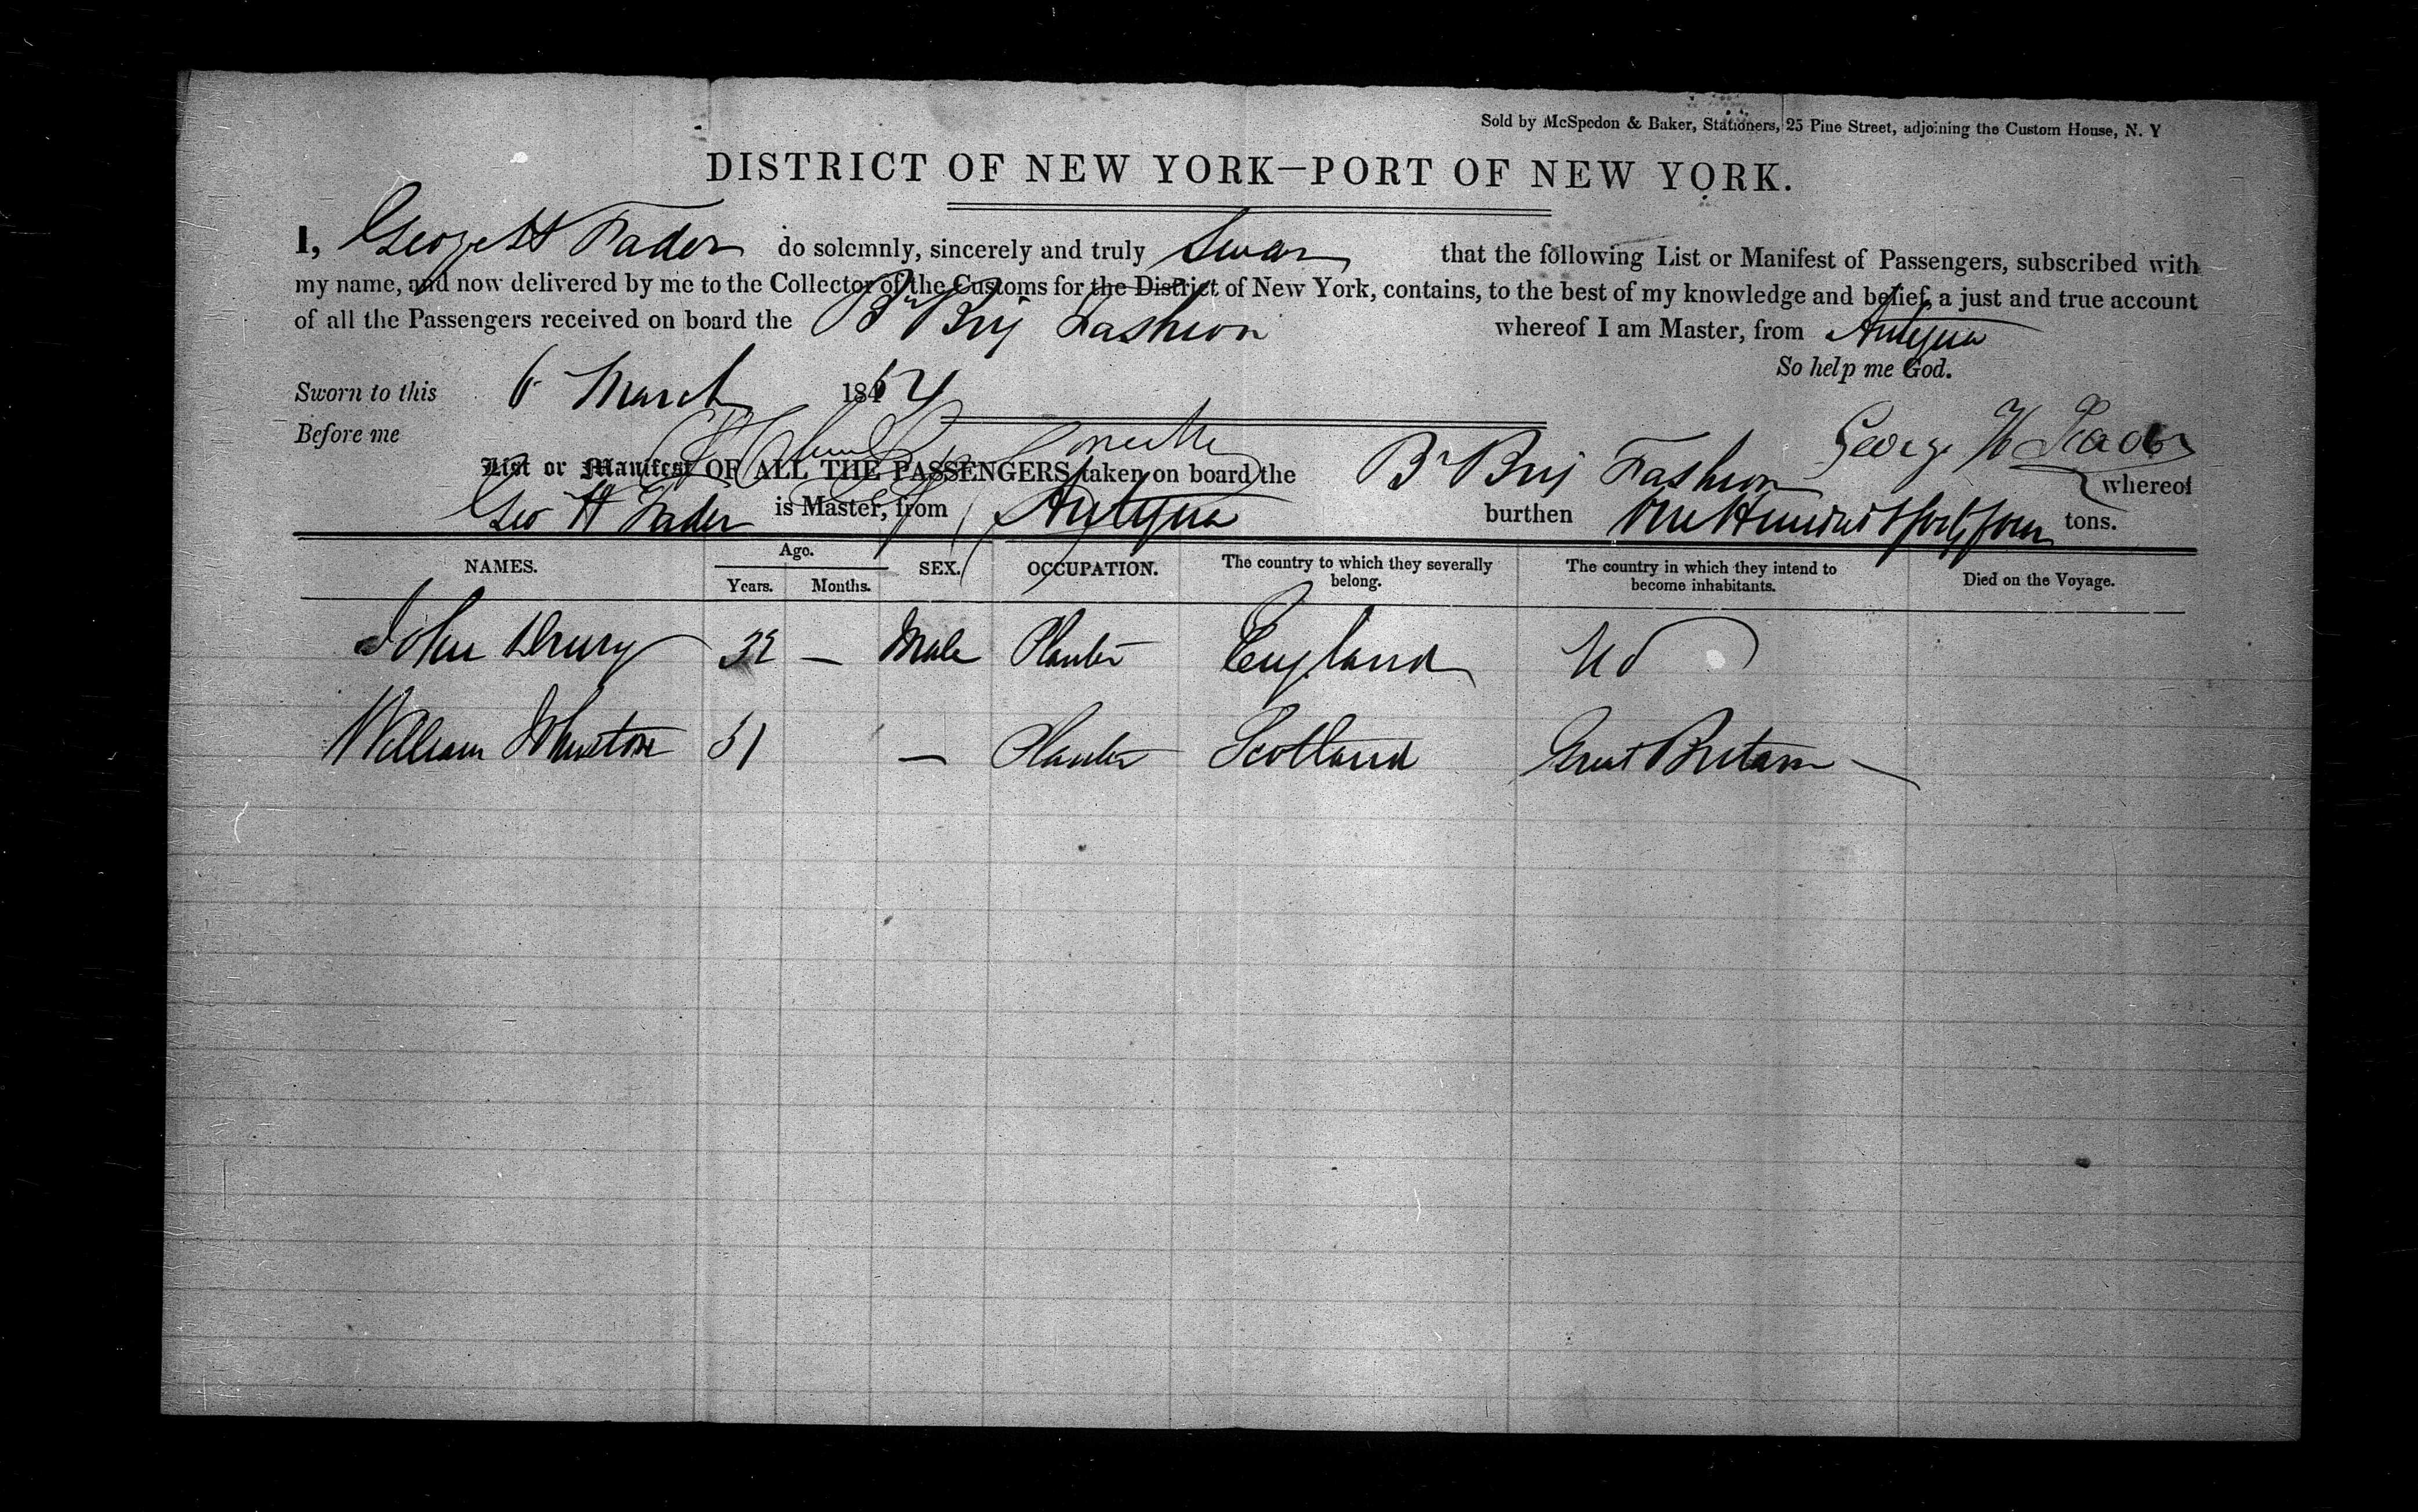 Sold by McSpedon & Baker, Stationers, 25 Pine Street, adjoining the Custom House, N. Y
DISTRICT OF NEW YORK—PORT OF NEW YORK.
I, George H Fader do solemnly, sincerely and truly Swear that the following List or Manifest of Passengers, subscribed with
my name, and now delivered by me to the Collector of the Customs for the District of New York, contains, to the best of my knowledge and belief, a just and true account
of all the Passengers received on board the Br Brig Fashion whereof I am Master, from Antigua
So help me God.
Sworn to this 6 March 1854
Before me
George H Fader
List or Manifest OF ALL THE PASSENGERS taken on board the Br Brig Fashion whereof
Geo H Fader is Master, from Antigua burthen One Hundred & forty four tons.
NAMES. Age. Years. Months. SEX. OCCUPATION. The country to which they severally belong. The country in which they intend to become inhabitants. Died on the Voyage.
John Drury 32 — Male Planter England
William Johnston 51 — Planter Scotland Great Britain